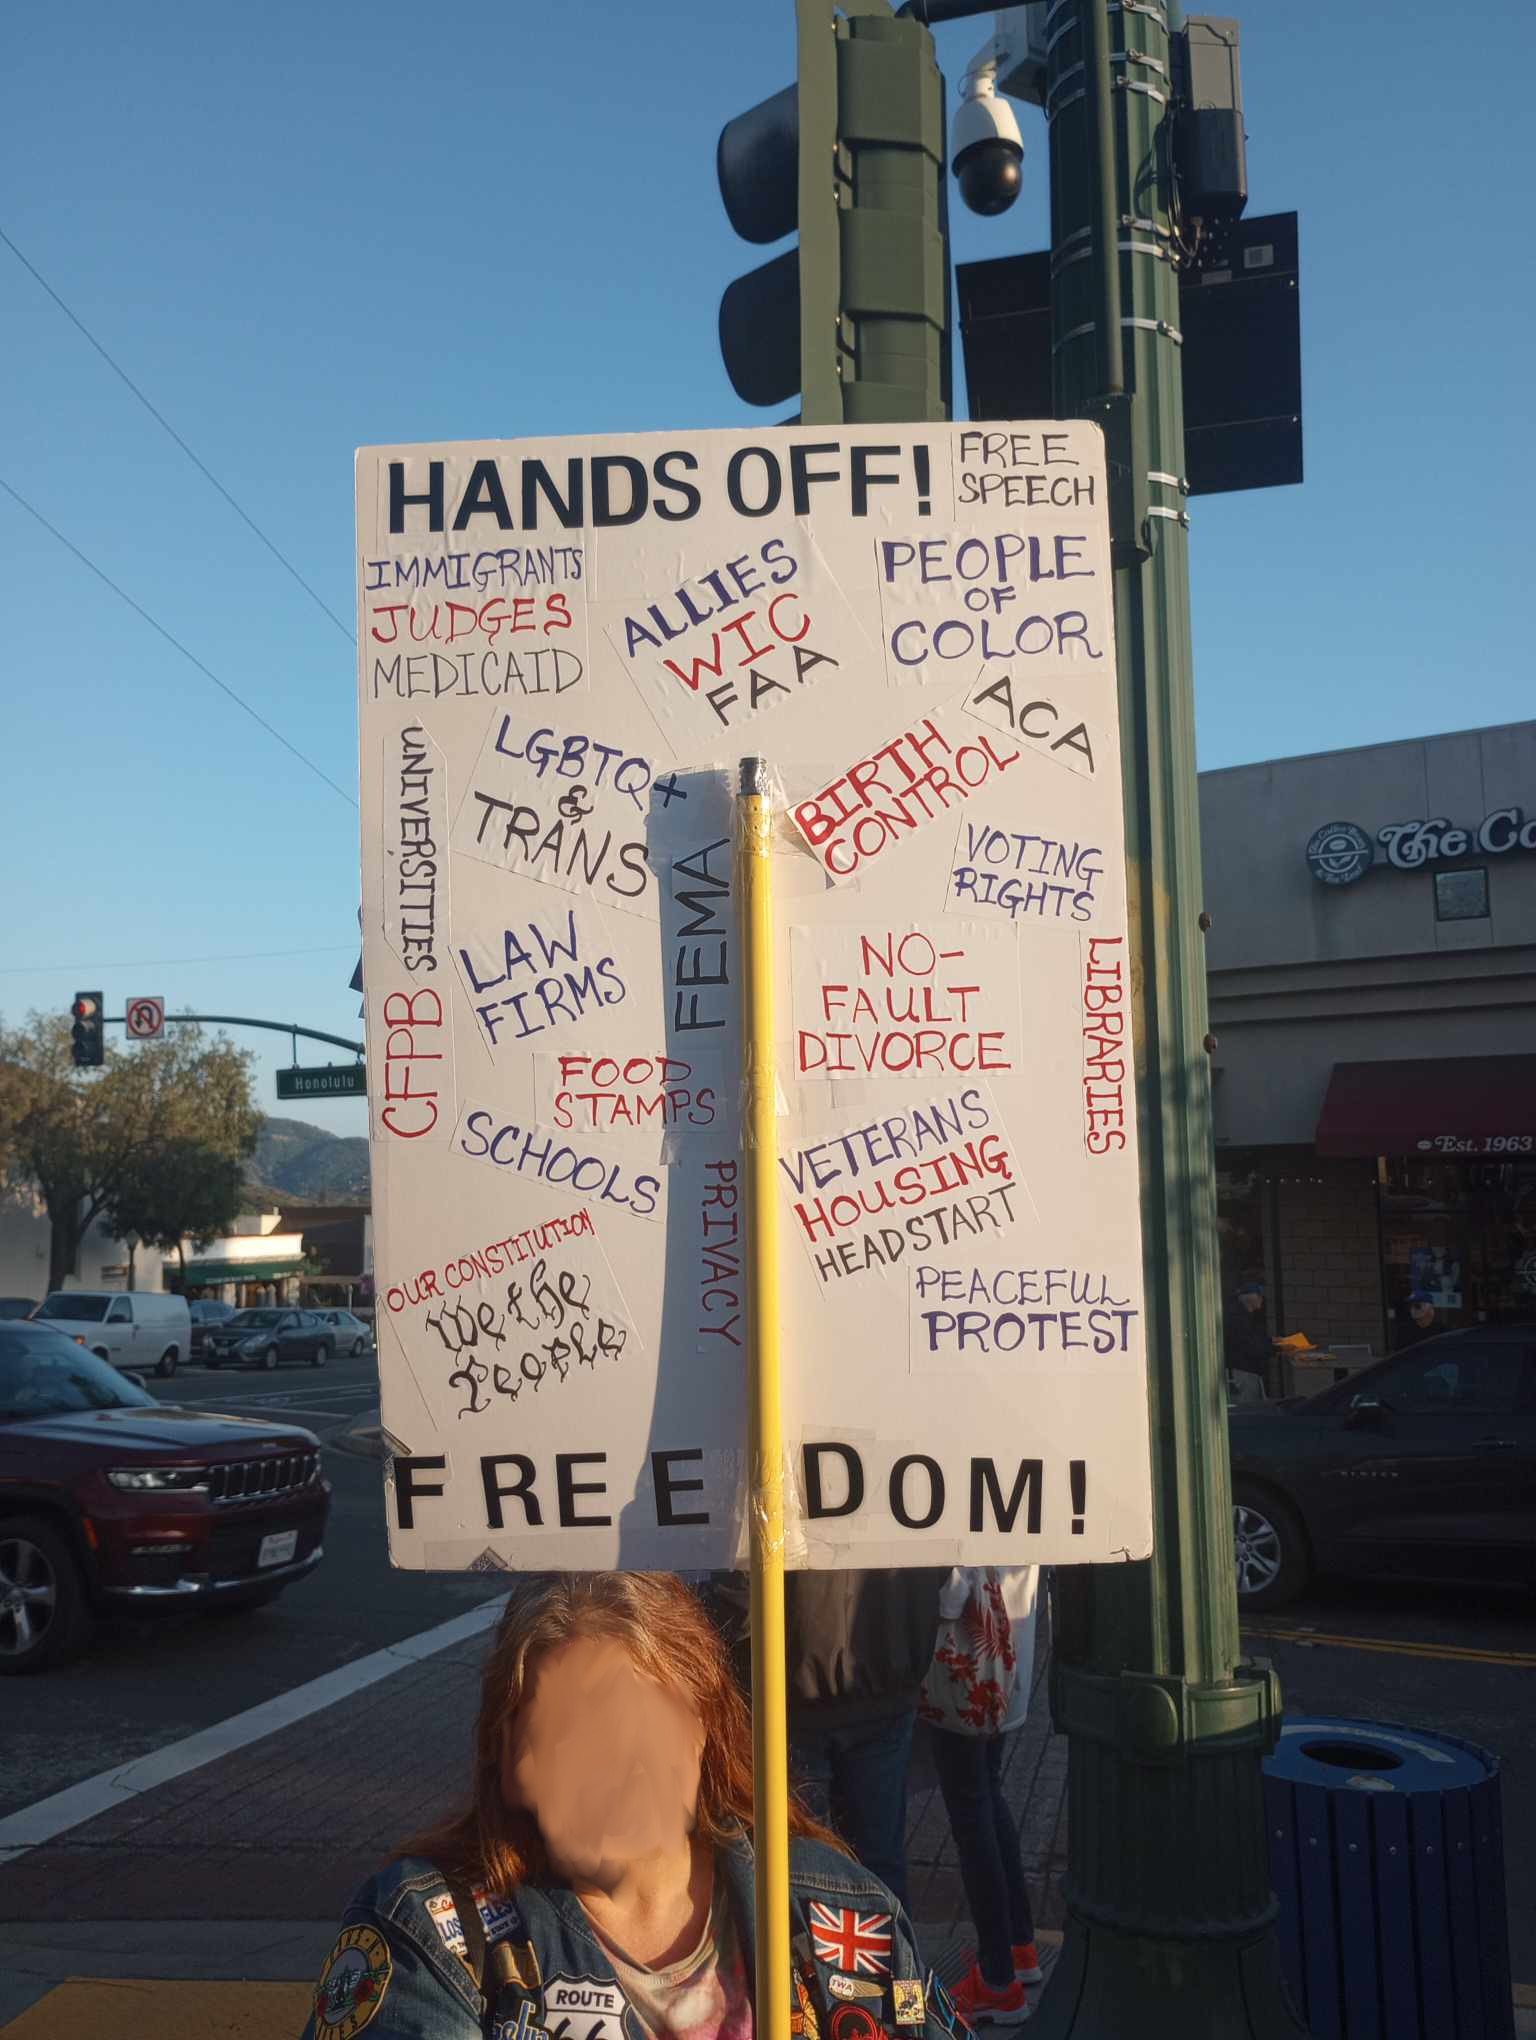 HANDS OFF!
FREE
SPEECH
IMMIGRANTS
JUDGES
MEDICAID
ALLIES
WIC
FAA
PEOPLE
OF
COLOR
ACA
UNIVERSITIES
LGBTQ+
&
TRANS
BIRTH
CONTROL
VOTING
RIGHTS
FEMA
LAW
FIRMS
NO-
FAULT
DIVORCE
LIBRARIES
CFPB
FOOD
STAMPS
SCHOOLS
PRIVACY
VETERANS
HOUSING
HEADSTART
OUR CONSTITUTION
We the
People
PEACEFUL
PROTEST
FREEDOM!
Honolulu
The Co
Est. 1963
LOS
ROUTE
66
TWA